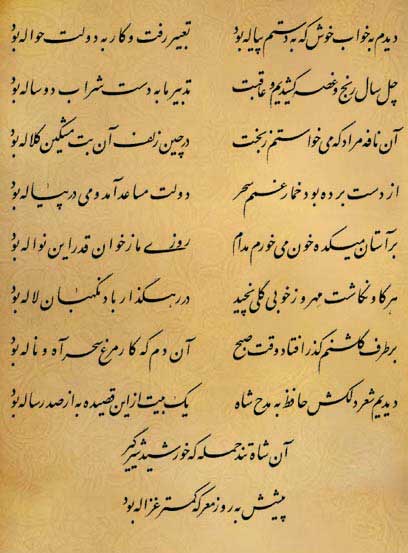 دیدم به خواب خوش که به دستم پیاله بود تعبیر رفت و کار به دولت حواله بود
چل سال رنج و غصه کشیدیم و عاقبت تدبیر ما به دست شراب دوساله بود
آن نافه مراد که می خواستم ز بخت در چین زلف آن بت مشکین کلاله بود
از دست برده بود خمار غمم سحر دولت مساعد آمد و می در پیاله بود
بر آستان میکده خون می خورم مدام روزی ما ز خوان قدر این نواله بود
هر کاو نکاشت مهر و ز خوبی گلی نچید در رهگذار باد نگهبان لاله بود
بر طرف گلشنم گذر افتاد وقت صبح آن دم که کار مرغ سحر آه و ناله بود
دیدیم شعر دلکش حافظ به مدح شاه یک بیت از این قصیده به از صد رساله بود
آن شاه تند حمله که خورشید شیرگیر
پیشش به روز معرکه کمتر غزاله بود